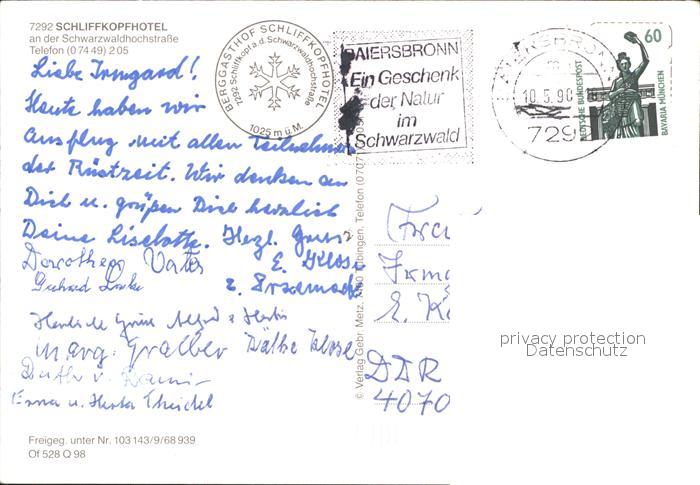 7292 SCHLIFFKOPFHOTEL
an der Schwarzwaldhochstraße
Telefon (0 74 49) 2 05
BERGGASTHOF SCHLIFFKOPFHOTEL
7292 Schliffkopf a.d. Schwarzwaldhochstraße
1025 m ü. M.
BAIERSBRONN
Ein Geschenk
der Natur
im
Schwarzwald
BAIERSBRONN
10.5.90
729
60
DEUTSCHE BUNDESPOST
BAVARIA MÜNCHEN
Liebe Irmgard!
Heute haben wir
Ausflug mit allen Teilnehmern
der Rüstzeit. Wir denken an
Dich u. grüßen Dich herzlich
Deine Liselotte. Herzl. Gruß
Dorothea E. Klose
Gerhard
Herzliche Grüße Alfred u.
Marg. Käthe Klose
Ruth v.
Erna u. Herta
© Verlag Gebr. Metz, 7400 Tübingen, Telefon (07071)
DDR
4070
privacy protection
Datenschutz
Freigeg. unter Nr. 103 143/9/68 939
Of 528 Q 98